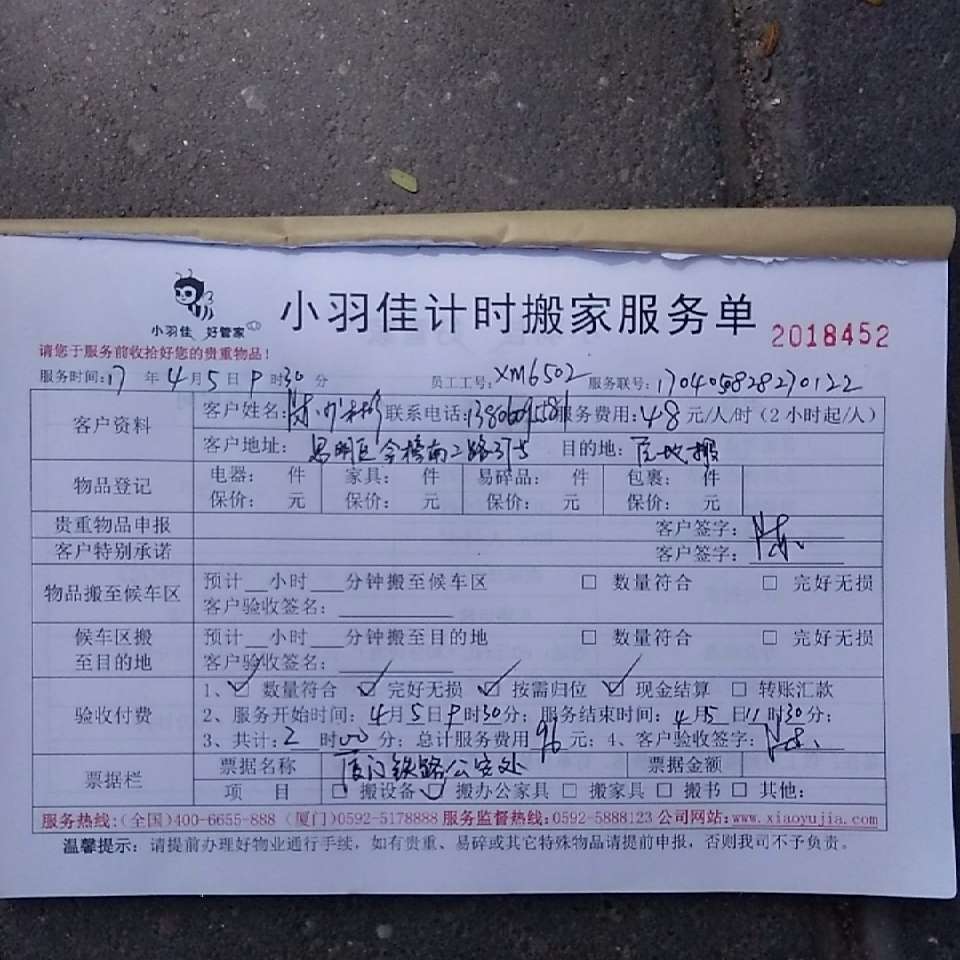 小羽佳 好管家
小羽佳计时搬家服务单
2018452
请您于服务前收拾好您的贵重物品!
服务时间:17 年 4 月 5 日 9 时 30 分 员工工号:XM6502 服务联号:170405828270122
客户资料 客户姓名:陈 联系电话: 服务费用:48 元/人/时(2小时起/人)
客户地址: 目的地:
物品登记 电器: 件 家具: 件 易碎品: 件 包裹: 件
保价: 元 保价: 元 保价: 元 保价: 元
贵重物品申报 客户签字:陈
客户特别承诺 客户签字:
物品搬至候车区 预计___小时___分钟搬至候车区 □ 数量符合 □ 完好无损
客户验收签名:
候车区搬至目的地 预计___小时___分钟搬至目的地 □ 数量符合 □ 完好无损
客户验收签名:
验收付费 1、☑ 数量符合 ☑ 完好无损 ☑ 按需归位 ☑ 现金结算 □ 转账汇款
2、服务开始时间:4月5日9时30分;服务结束时间:4月5日11时30分;
3、共计:2 时00分;总计服务费用 96 元;4、客户验收签字:陈
票据栏 票据名称 厦门铁路公安处 票据金额
项 目 □ 搬设备 ☑ 搬办公家具 □ 搬家具 □ 搬书 □ 其他:
服务热线:(全国)400-6655-888 (厦门)0592-5178888 服务监督热线:0592-5888123 公司网站:www.xiaoyujia.com
温馨提示:请提前办理好物业通行手续,如有贵重、易碎或其它特殊物品请提前申报,否则我司不予负责。